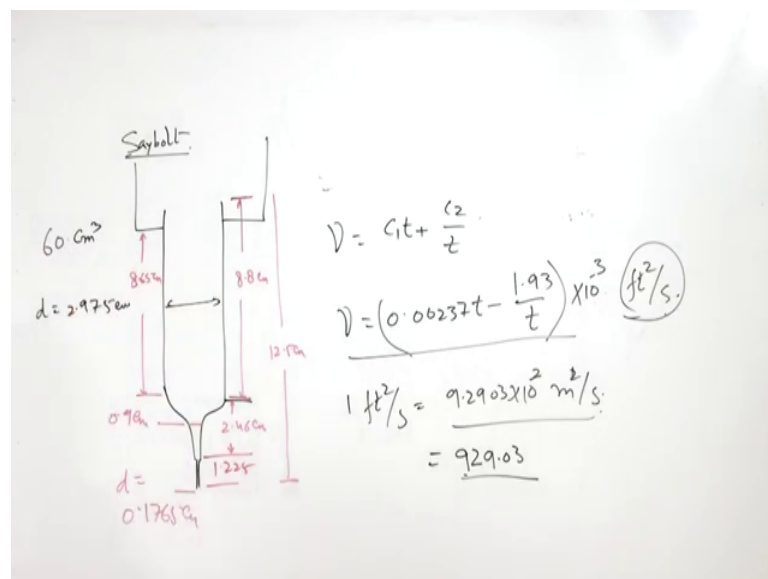 Saybolt
60 cm³
8.65cm
8.8cm
d = 2.975cm
12.5cm
0.9cm
2.46cm
1.225
d =
0.1765cm
ν = C₁t + C₂/t
ν = (0.00237t - 1.93/t) ×10⁻³ ft²/s.
1 ft²/s = 9.2903×10² m²/s.
= 929.03